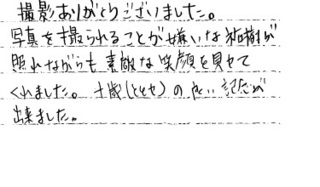 撮影ありがとうございました。
写真を撮られることが嫌いな
照れながらも素敵な笑顔を見せて
くれました。十歳(ととせ)の良い記念が
出来ました。